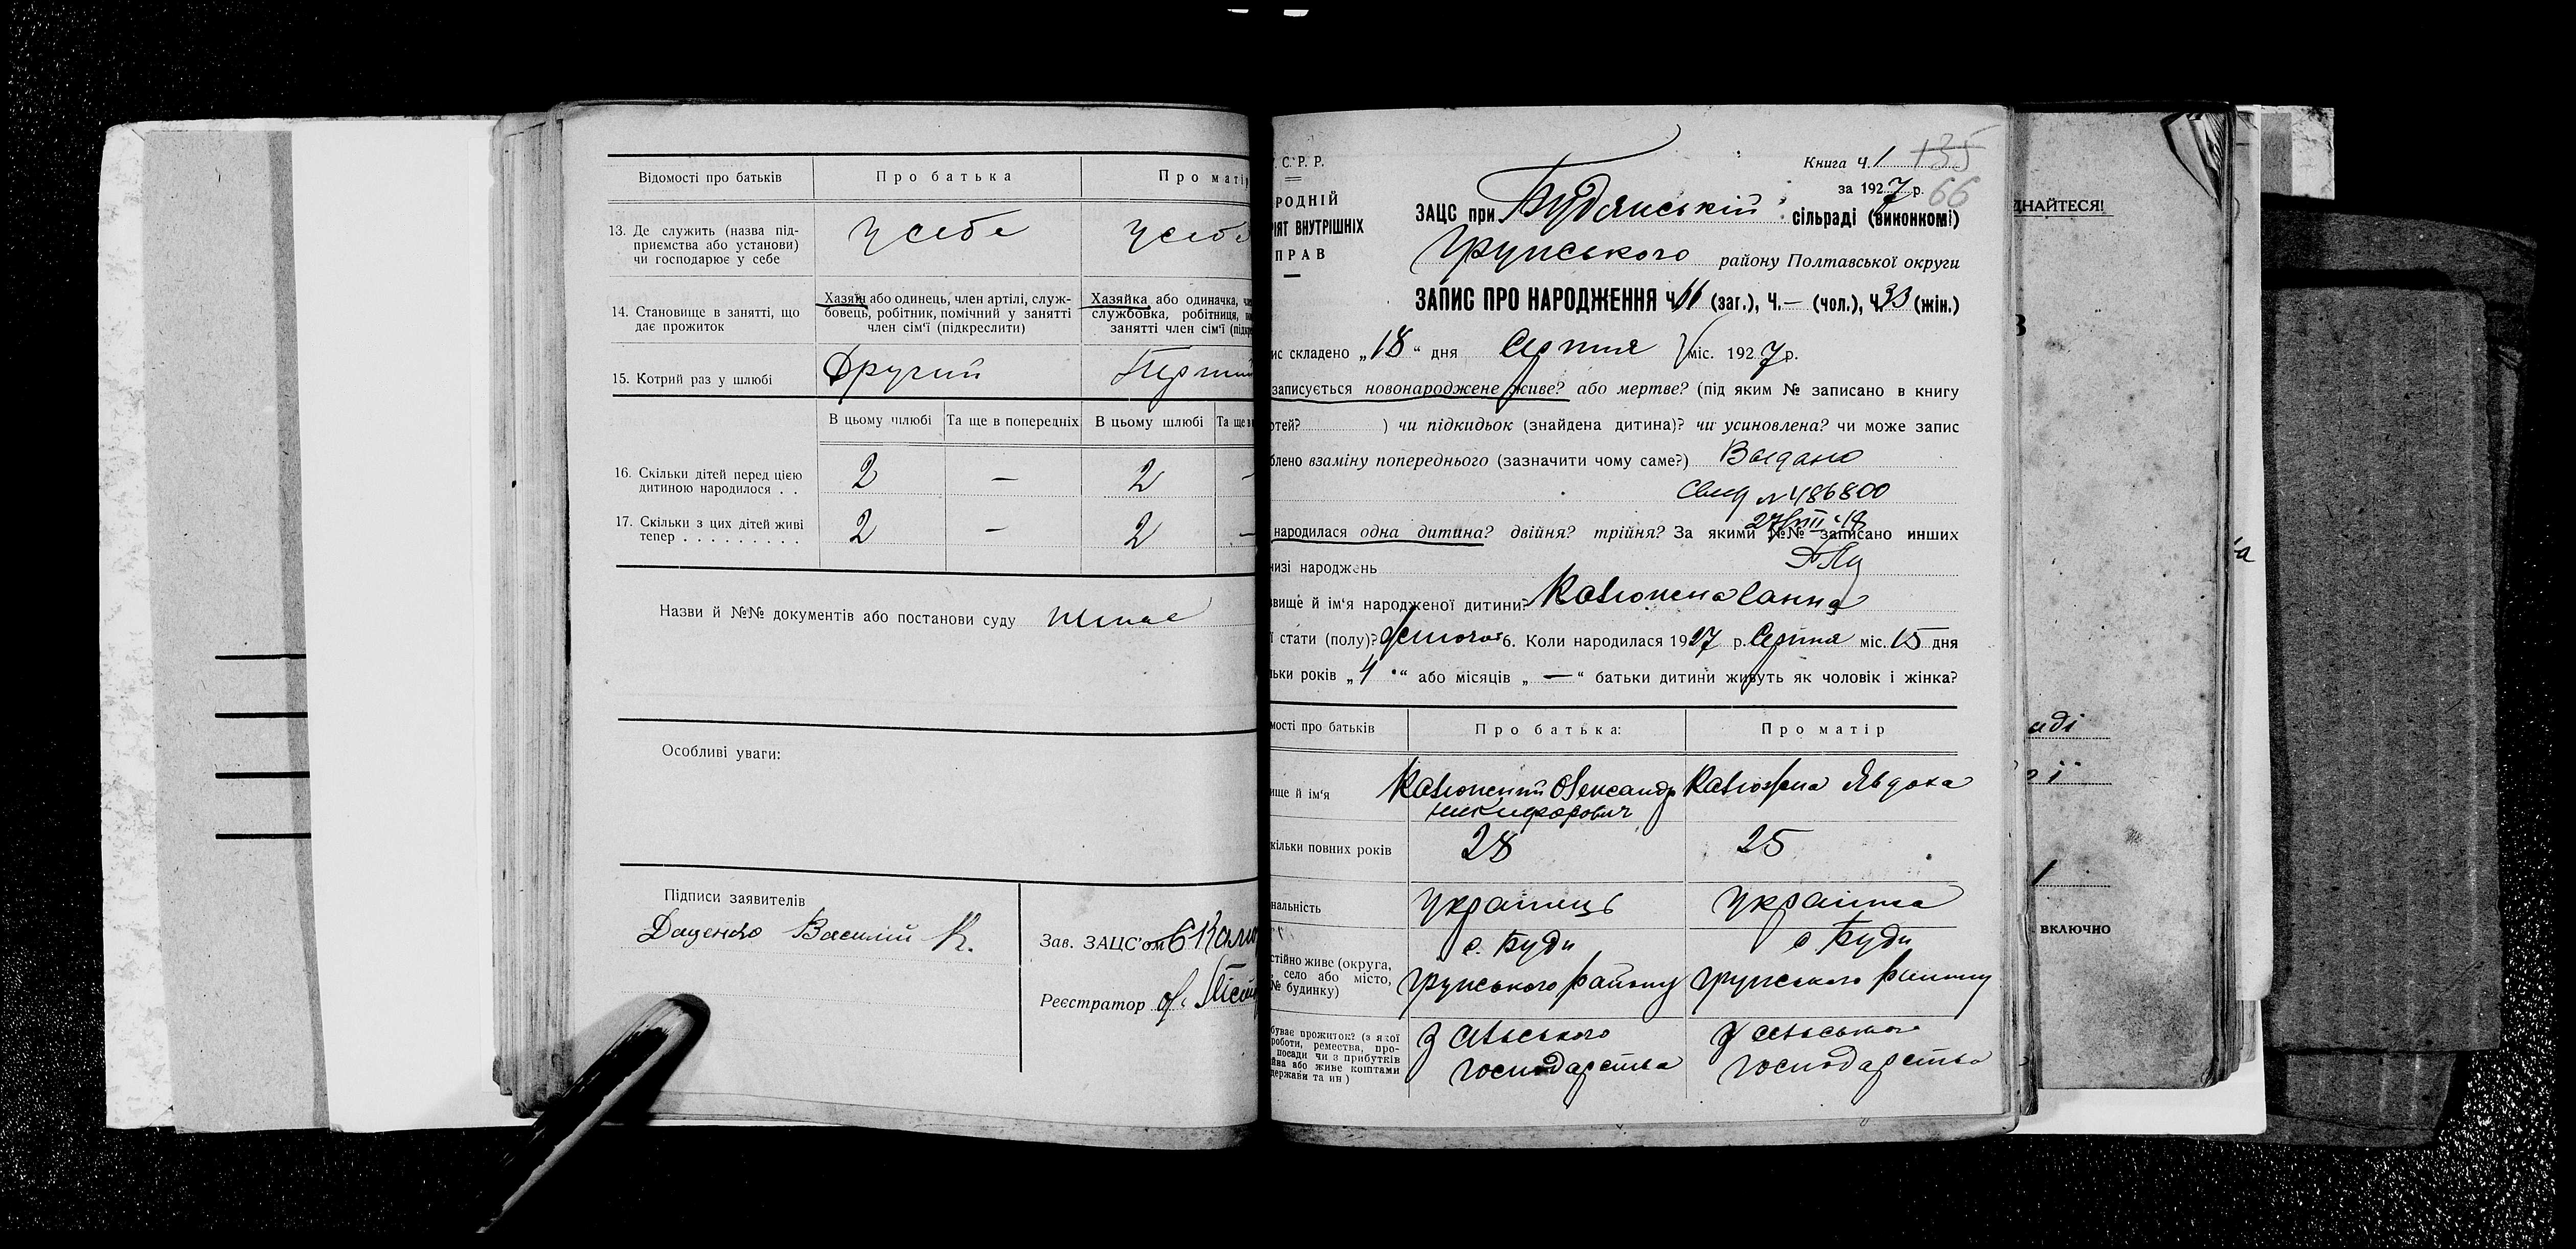 Відомості про батьків
Про батька
Про матір
13. Де служить (назва під-
приємства або установи)
чи господарює у себе
у себе
у себе
14. Становище в занятті, що
дає прожиток
Хазяїн або одинець, член артілі, служ-
бовець, робітник, помічний у занятті
член сім'ї (підкреслити)
Хазяйка або одиначка,
службовка, робітниця,
занятті член сім'ї
15. Котрий раз у шлюбі
Другий
В цьому шлюбі
Та ще в попередніх
В цьому шлюбі
Та ще в
16. Скільки дітей перед цією
дитиною народилося . .
2 — 2 -
17. Скільки з цих дітей живі
тепер . . . . . . . . .
2 — 2 —
Назви й №№ документів або постанови суду
Особливі уваги:
Підписи заявителів
Даценко Василій К.
Зав. ЗАЦС'ом
Реєстратор
С. Р. Р.
РОДНІЙ
ІЯТ ВНУТРІШНІХ
ПРАВ
Книга ч. 1 135
за 1927 р. 66
ЗАЦС при Будянській сільраді (виконкомі)
Грунського району Полтавської округи
ЗАПИС ПРО НАРОДЖЕННЯ Ч. 66 (заг.), Ч. — (чол.), Ч. 33 (жін.)
ис складено „18“ дня Серпня міс. 1927 р.
записується новонароджене живе? або мертве? (під яким № записано в книгу
ртей? ) чи підкидьок (знайдена дитина)? чи усиновлена? чи може запис
блено взаміну попереднього (зазначити чому саме?) Видано
№ 486800
народилася одна дитина? двійня? трійня? За якими №№ записано инших
низі народжень
звище й ім'я народженої дитини? Ганна
ї стати (полу)? жіночої 6. Коли народилася 1927 р. Серпня міс. 15 дня
льки років „4“ або місяців „—“ батьки дитини живуть як чоловік і жінка?
мості про батьків
Про батька:
Про матір
ище й ім'я
Олександр
Никифорович
Явдоха
кільки повних років
28
25
нальність
українець
українка
стійно живе (округа,
село або місто,
№ будинку)
с. Буди
Грунського району
с. Буди
Грунського району
буває прожиток? (з якої
роботи, ремества, про-
посади чи з прибутків
йва або живе коштами
держави та ин)
З сільського
господарства
З сільського
господарства
ДНАЙТЕСЯ!
В
аді
ії
1
включно